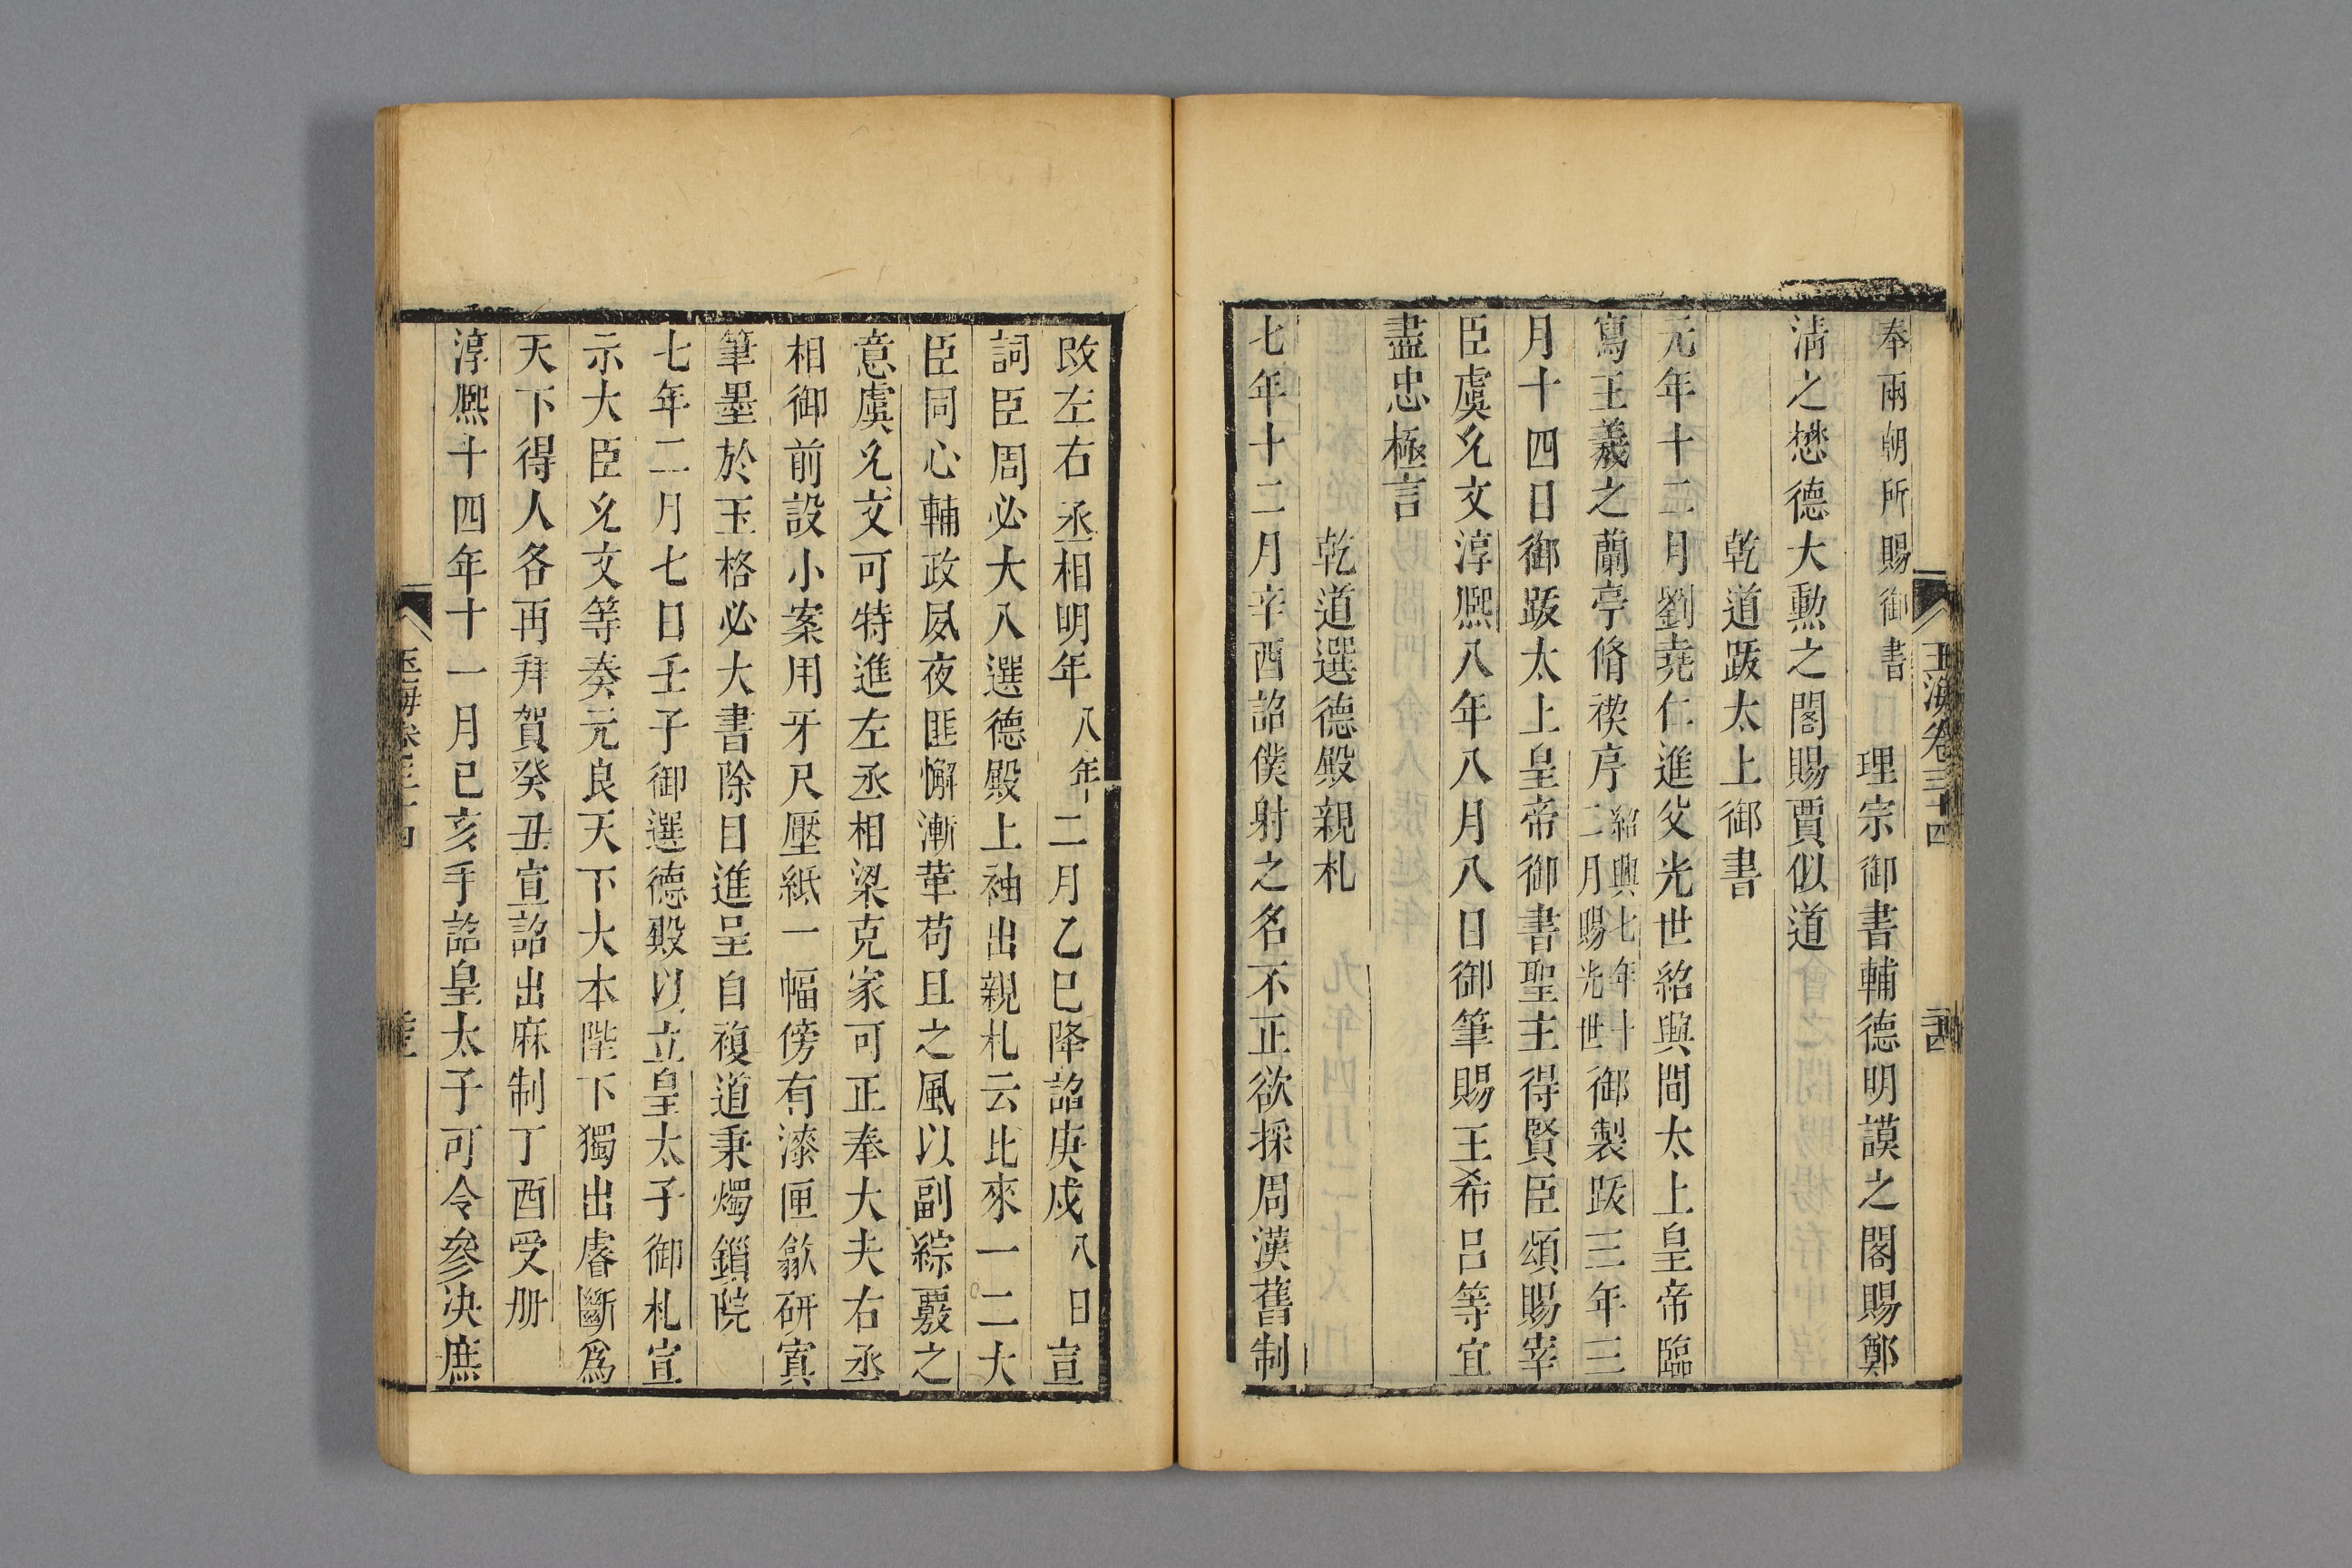 奉兩朝所賜御書　理宗御書輔德明謨之閣賜鄭
清之懋德大勲之閣賜賈似道
乾道跋太上御書
元年十二月劉堯仁進父光世紹興間太上皇帝臨
寫王羲之蘭亭脩禊序紹興七年十二月賜光世御製跋三年三
月十四日御跋太上皇帝御書聖主得賢臣頌賜宰
臣虞允文淳熈八年八月八日御筆賜王希吕等宜
盡忠極言
乾道選德殿親札
七年十二月辛酉詔僕射之名不正欲採周漢舊制
玉海卷三十四
改左右丞相明年八年二月乙巳降詔庚戍八日宣
詞臣周必大入選德殿上袖出親札云比來一二大
臣同心輔政夙夜匪懈漸革苟且之風以副綜覈之
意虞允文可特進左丞相梁克家可正奉大夫右丞
相御前設小案用牙尺壓紙一幅傍有漆匣歙硏寘
筆墨於玉格必大書除目進呈自複道秉燭鎖院
七年二月七日壬子御選德殿以立皇太子御札宣
示大臣允文等奏元良天下大本陛下獨出睿斷爲
天下得人各再拜賀癸丑宣詔出麻制丁酉受册
淳熈十四年十一月己亥手詔皇太子可令參决庶
玉海卷三十四